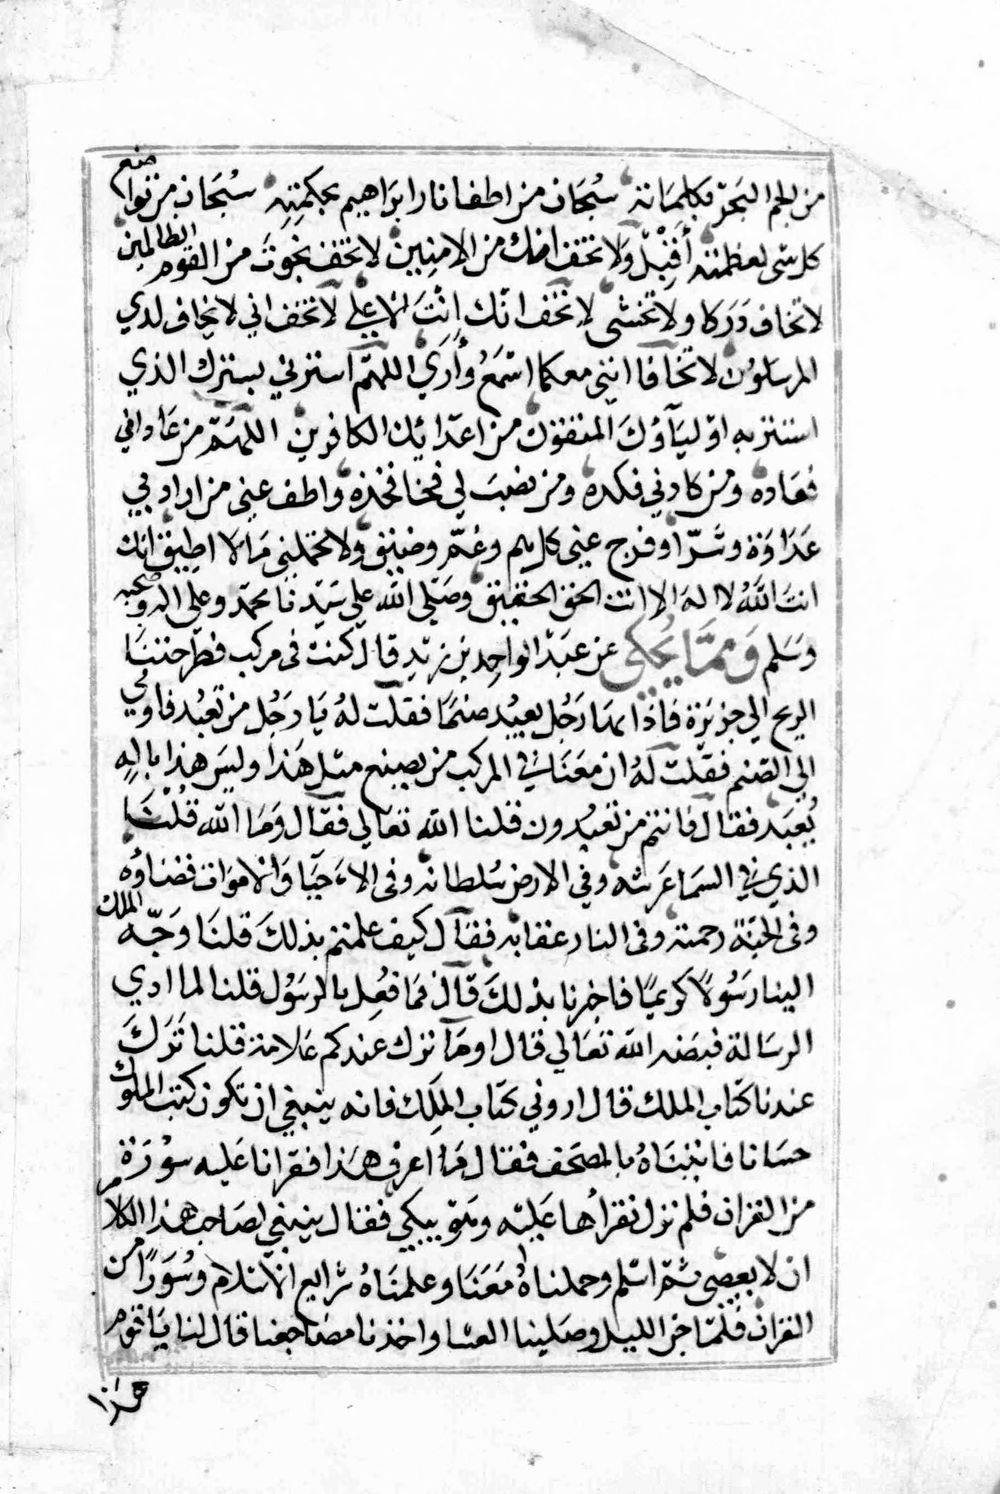 من الجم البحر بكلماته سبحان من اطفا نار ابراهيم بحكمته سبحان من تواضع
كل شى لعظمته أقبل ولا تخف انك من الامنين لا تخف نجوت من القوم الظالمين
لا تخاف دركا ولا تخشى لا تخف انك انت الاعلي لا تخف اني لا يخاف لدي
المرسلون لا تخافا انني معكما اسمع وأري اللهم استرني بسترك الذي
استتر به اولياؤك المتقون من اعدايك الكافرين اللهم من عاداني
فعاده ومن كادني فكده ومن نصب لي فخا فخذه واطف عني من اراد بي
عداوة وشرا وفرج عني كل هم وغم وضيق ولا تحملني ما لا اطيق انك
انت الله لا اله الا انت الحق الحقيق وصلي الله علي سيدنا محمد وعلي اله وصحبه
وسلم ومما يحكى عن عبد الواحد بن زيد قال كنت فى مركب فطرحتنا
الريح الي جزيزة فاذا بها رجل يعبد صنما فقلت له يا رجل من تعبد فاومي
الي الصنم فقلت له ان معنا في المركب من يصنع مثل هذا وليس هذا باله
يعبد فقال فانتم من تعبدون قلنا الله تعالي فقال وما الله قلنا
الذي في السما عرشه وفي الارض سلطانه وفى الاحيا والاموات قضاؤه
وفى الجنة رحمته وفى النار عقابه فقال كيف علمتم بذلك قلنا وجه الملك
الينا رسولا كريما فاخبرنا بذلك قال فما فعل بالرسول قلنا لما ادي
الرسالة قبضه الله تعالي قال اوما ترك عندكم علامة قلنا ترك
عندنا كتاب الملك قال اروني كتاب الملك فانه ينبغي ان تكون كتب الملوك
حسانا فاتيناه بالمصحف فقال ما اعرف هذا فقرانا عليه سورة
من القران فلم نزل نقرأها عليه وهو يبكي فقال ينبغي لصاحب هذا الكلام
ان لا يعصى ثم اسلم وحملناه معنا وعلمناه شرايع الاسلام وسورا من
القران فلما جن الليل وصلينا العشا واخذنا مضاجعنا قال لنا يا قوم